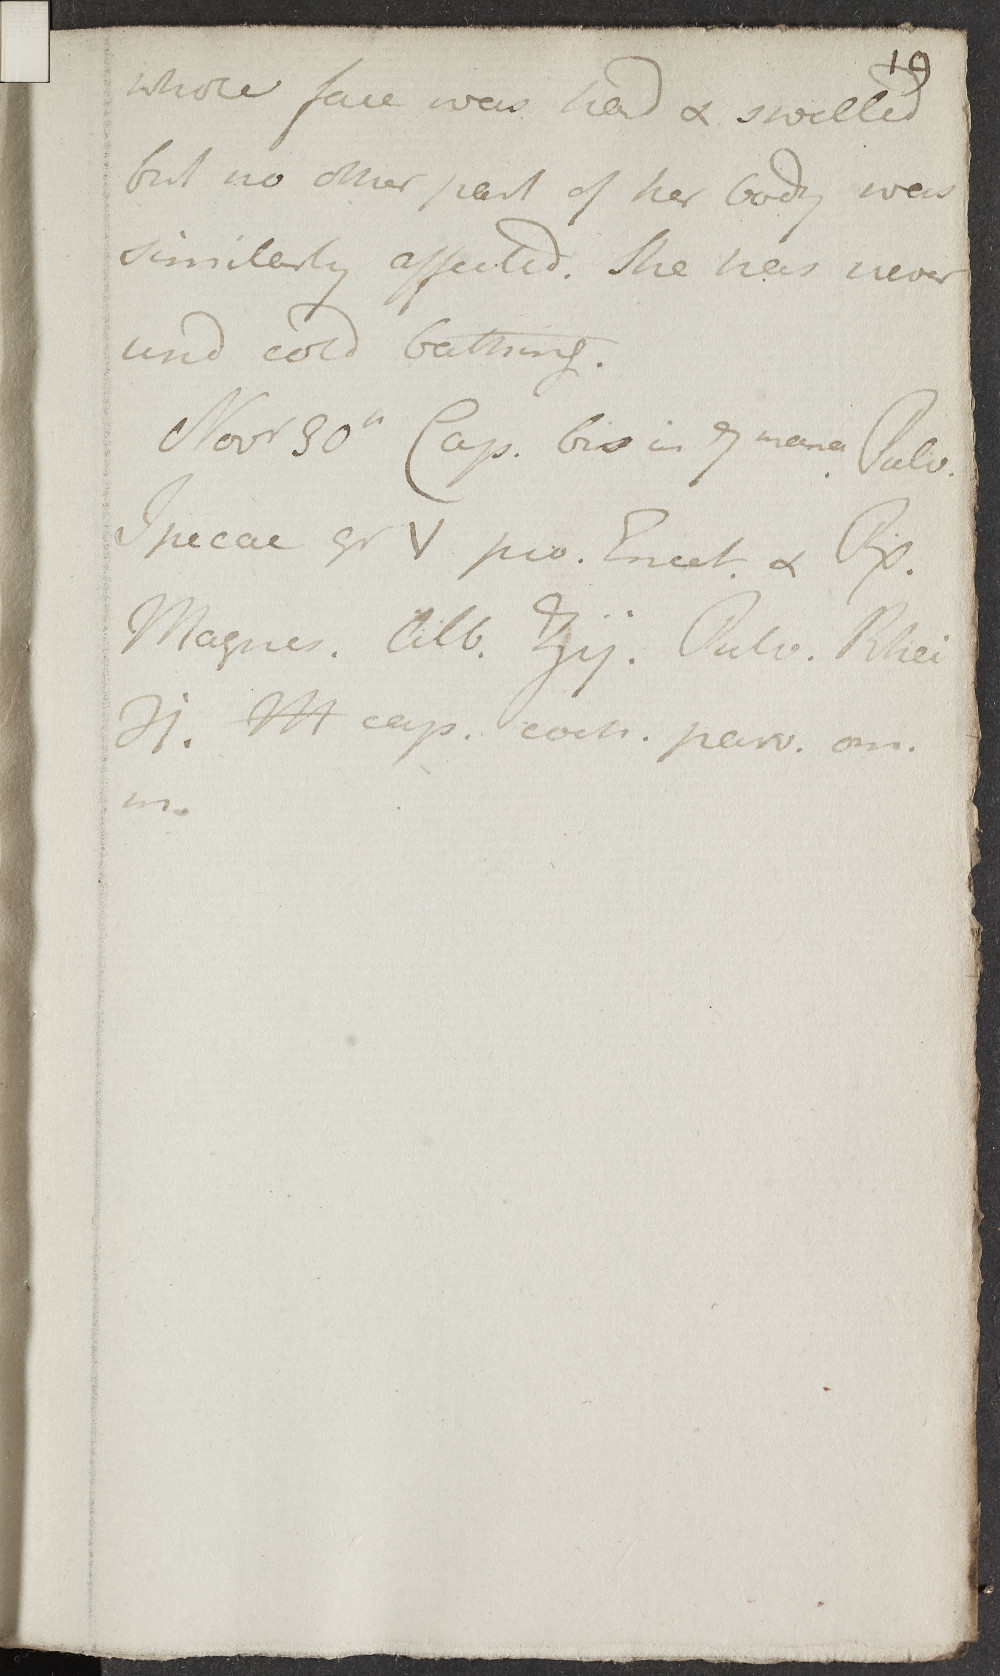 19
whole face was hard & swelled
but no other part of her body was
similarly affected. She has never
used cold bathing.
Novr 30th Cap. bis in mane Pulv.
Ipecac gr V pro. Emet. & Rx.
Magnes. alb. ʒij. Pulv. Rhei
ʒj. M cap. coch. parv. om.
m.